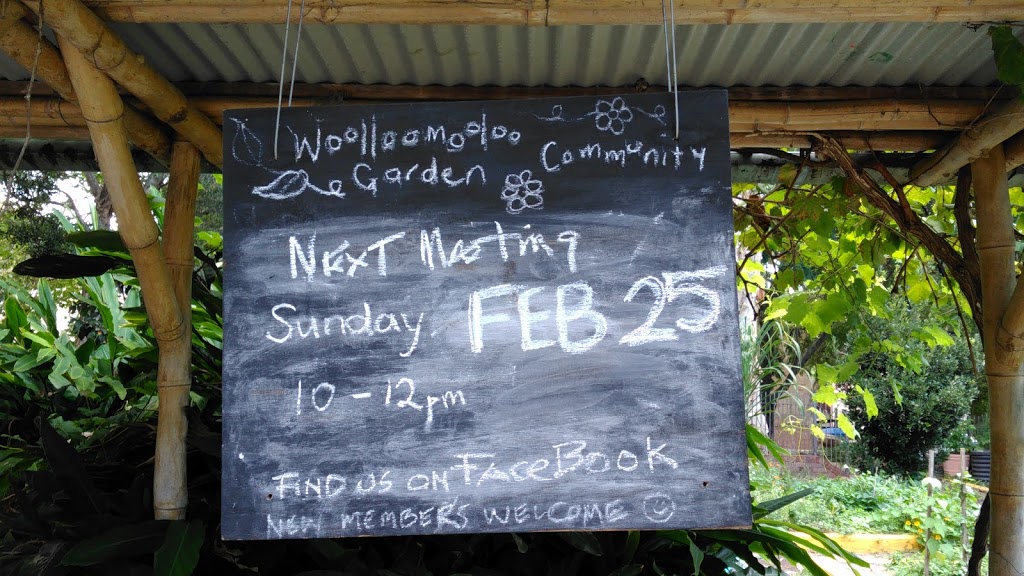 Woolloomooloo
Community
Garden
NEXT Meeting
Sunday. FEB 25
10-12pm
FIND US ON FaceBook
NEW MEMBERS WELCOME ☺